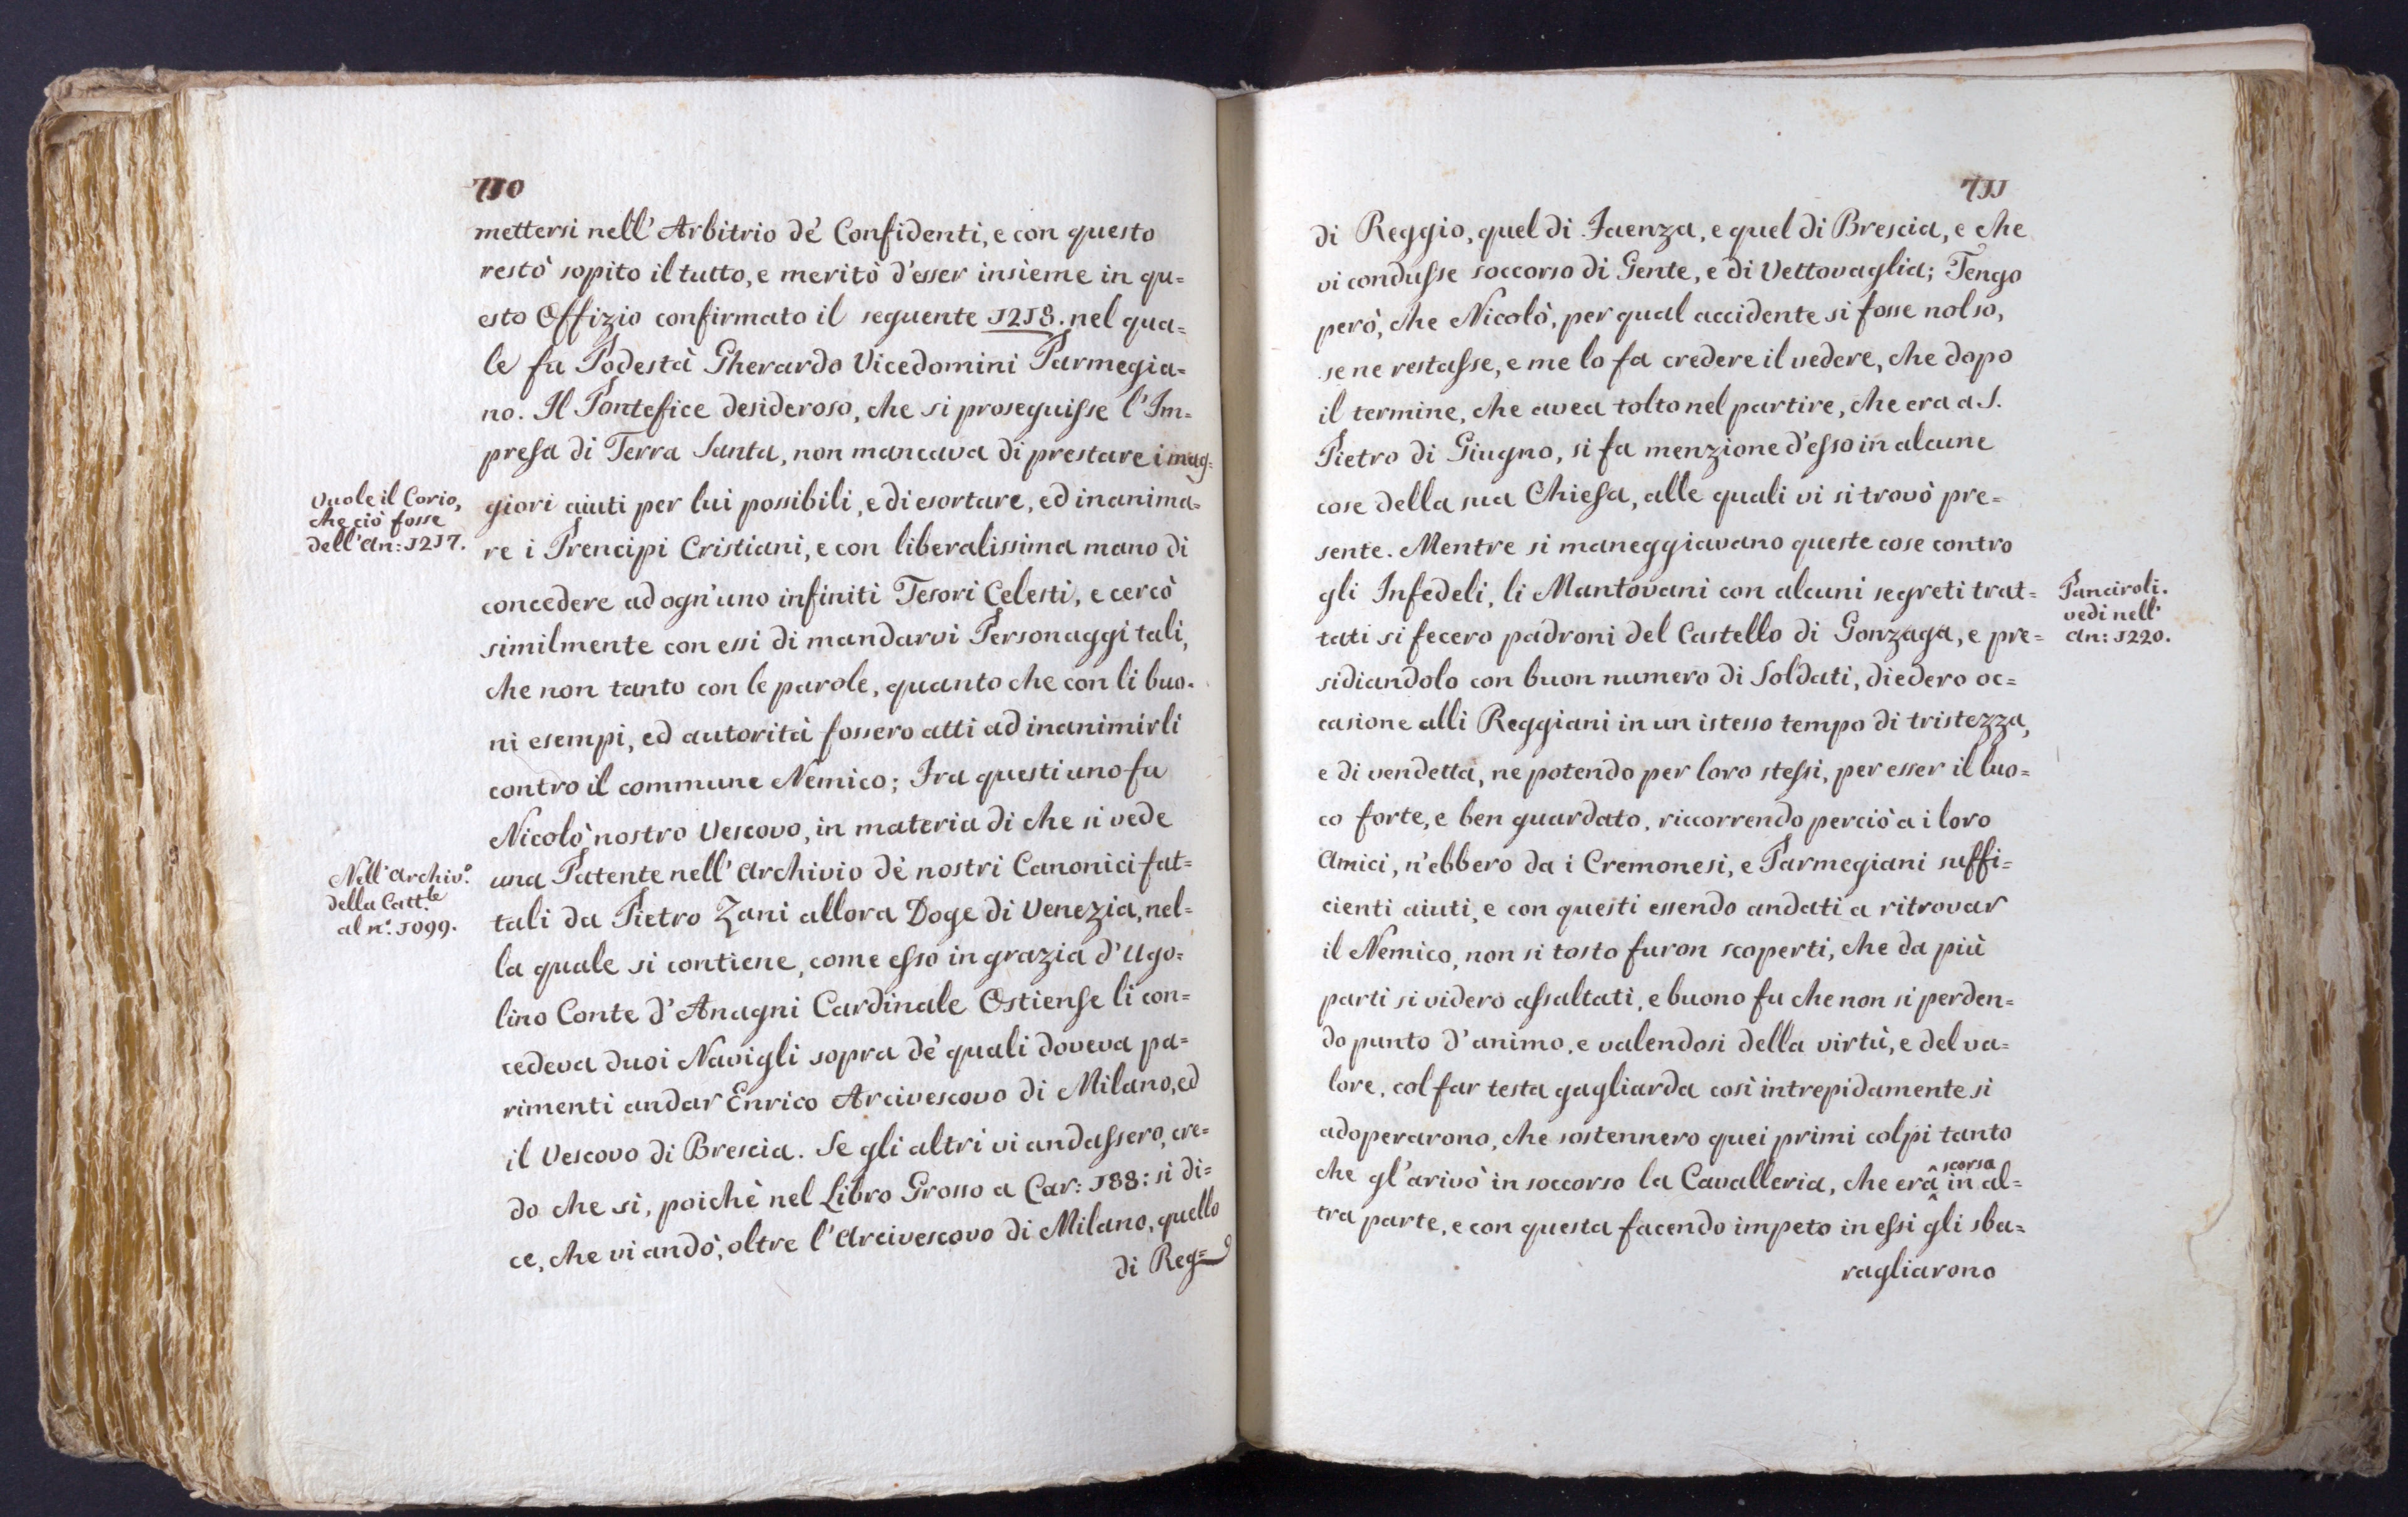 710
mettersi nell' Arbitrio de' Confidenti, e con questo
restò sopito il tutto, e meritò d'esser insieme in qu=
esto Offizio confirmato il seguente 1218. nel qua=
le fu Podestà Gherardo Vicedomini Parmegia=
no. Il Pontefice desideroso, che si proseguisse l'Im=
presa di Terra Santa, non mancava di prestare i mag=
giori aiuti per lui possibili, e di esortare, ed inanima=
re i Prencipi Cristiani, e con liberalissima mano di
concedere ad ogn'uno infiniti Tesori Celesti, e cercò
similmente con essi di mandarvi Personaggi tali,
che non tanto con le parole, quanto che con li buo=
ni esempi, ed autorità fossero atti ad inanimirli
contro il commune Nemico; Fra questi uno fu
Nicolò nostro Vescovo, in materia di che si vede
una Patente nell' Archivio de' nostri Canonici fat=
tali da Pietro Zani allora Doge di Venezia, nel=
la quale si contiene, come esso in grazia d'Ugo=
lino Conte d'Anagni Cardinale Ostiense li con=
cedeva duoi Navigli sopra de' quali doveva pa=
rimenti andar Enrico Arcivescovo di Milano, ed
il Vescovo di Brescia. Se gli altri vi andassero, cre=
do che sì, poichè nel Libro Grosso a Car: 188: si di=
ce, che vi andò, oltre l'Arcivescovo di Milano, quello
di Reg=
Vuole il Corio,
che ciò fosse
dell'An: 1217.
Nell' Archiv.º
della Catt.le
al nº. 1099.
711
di Reggio, quel di Faenza, e quel di Brescia, e che
vi condusse soccorso di Gente, e di Vettovaglia; Tengo
però, che Nicolò, per qual accidente si fosse nol so,
se ne restasse, e me lo fa credere il vedere, che dopo
il termine, che avea tolto nel partire, che era a S.
Pietro di Giugno, si fa menzione d'esso in alcune
cose della sua Chiesa, alle quali vi si trovò pre=
sente. Mentre si maneggiavano queste cose contro
gli Infedeli, li Mantovani con alcuni segreti trat=
tati si fecero padroni del Castello di Gonzaga, e pre=
sidiandolo con buon numero di Soldati, diedero oc=
casione alli Reggiani in un istesso tempo di tristezza,
e di vendetta, ne potendo per loro stessi, per esser il luo=
co forte, e ben guardato, riccorrendo perciò a i loro
Amici, n'ebbero da i Cremonesi, e Parmegiani suffi=
cienti aiuti, e con questi essendo andati a ritrovar
il Nemico, non si tosto furon scoperti, che da più
parti si videro assaltati, e buono fu che non si perden=
do punto d'animo, e valendosi della virtù, e del va=
lore, col far testa gagliarda così intrepidamente si
adoperarono, che sostennero quei primi colpi tanto
che gl'arivò in soccorso la Cavalleria, che era scorsa in al=
tra parte, e con questa facendo impeto in essi gli sba=
ragliarono
Panciroli.
vedi nell'
An: 1220.